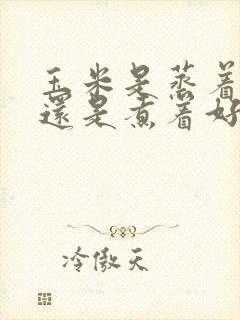 玉米是蒸着
還是煮着好
冷傲天